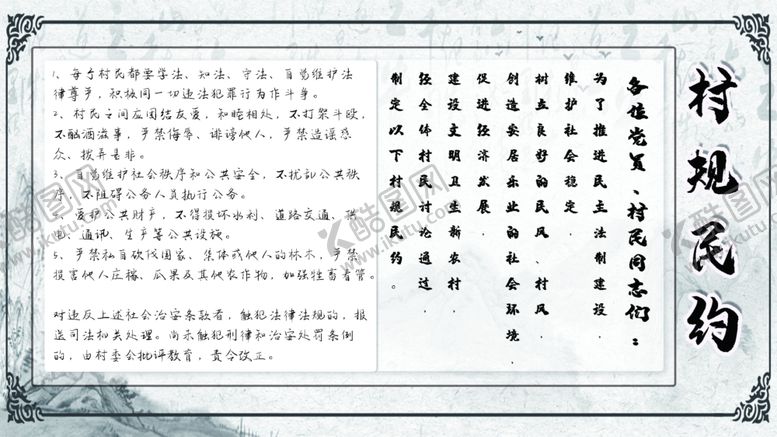 村规民约
各位党员、村民同志们:
为了推进民主法制建设.
维护社会稳定.
树立良好的民风、村风.
创造安居乐业的社会环境.
促进经济发展.
建设文明卫生新农村.
经全体村民讨论通过.
制定以下村规民约。
1、每个村民都要学法、知法、守法、自觉维护法
律尊严，积极同一切违法犯罪行为作斗争。
2、村民之间应团结友爱，和睦相处，不打架斗殴，
不酗酒滋事，严禁侮辱、诽谤他人，严禁造谣惑
众、拨弄是非。
3、自觉维护社会秩序和公共安全，不扰乱公共秩
序，不阻碍公务人员执行公务。
4、爱护公共财产，不得损坏水利、道路交通、供
电、通讯、生产等公共设施。
5、严禁私自砍伐国家、集体或他人的林木，严禁
损害他人庄稼、瓜果及其他农作物，加强牲畜看管。
对违反上述社会治安条款者，触犯法律法规的，报
送司法机关处理。尚未触犯刑律和治安处罚条例
的，由村委会批评教育，责令改正。
酷图网
www.ikutu.com